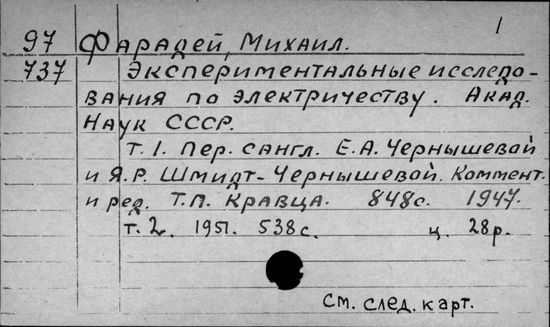 1
97 Фарадей, Михаил.
737 Экспериментальные исследо-
вания по электричеству. Акад.
Наук СССР.
т. 1. Пер. с англ. Е.А. Чернышевой
и Я.Р. Шмидт-Чернышевой. Коммент.
и ред. Т.П. Кравца. 848с. 1947.
т. 2. 1951. 538с. ц. 28р.
См. след. карт.